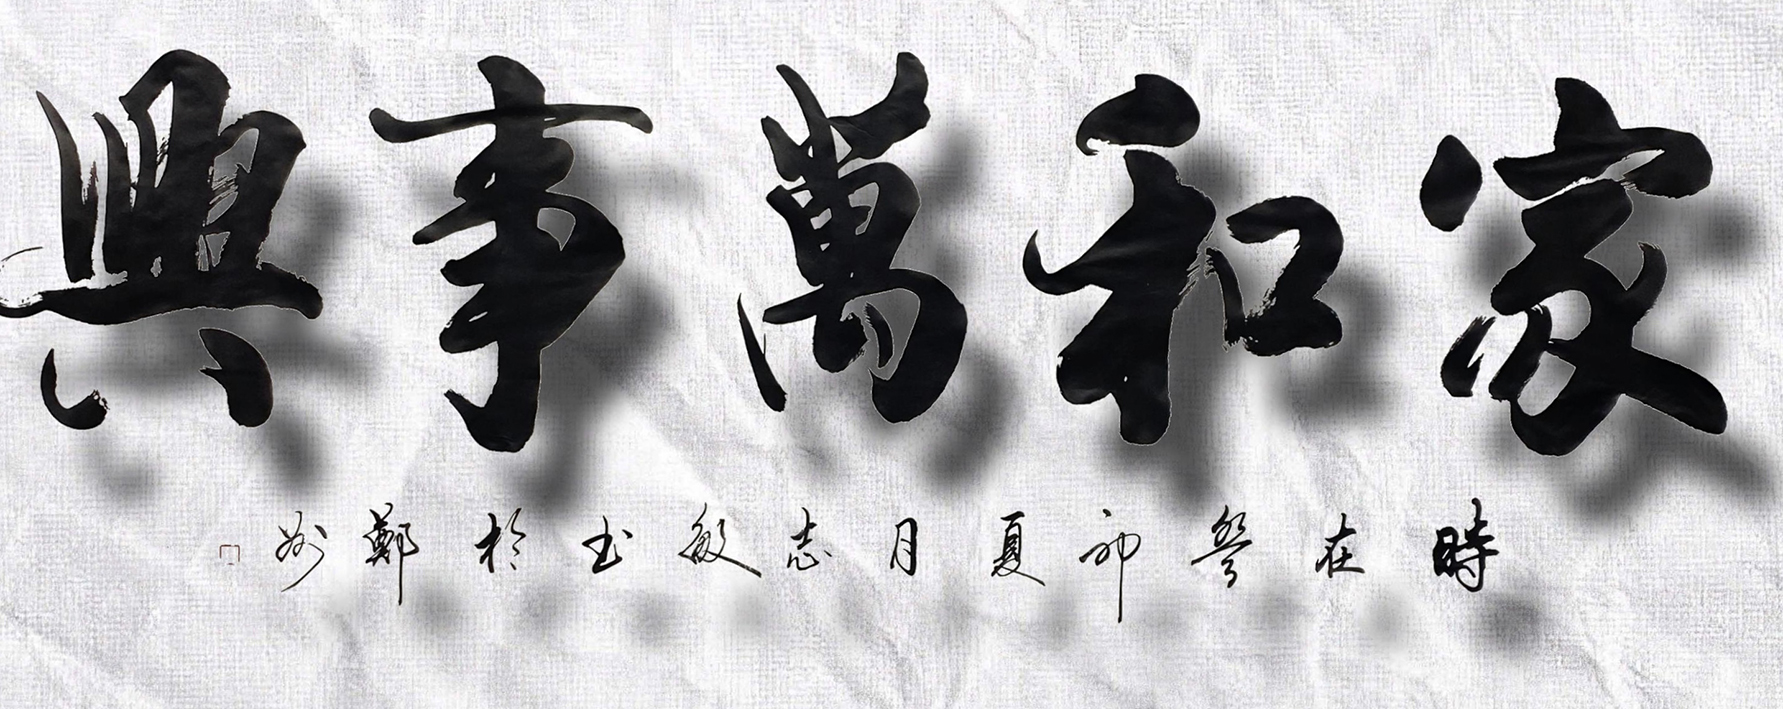 家和萬事興
時在癸卯夏月志敏书於鄭州